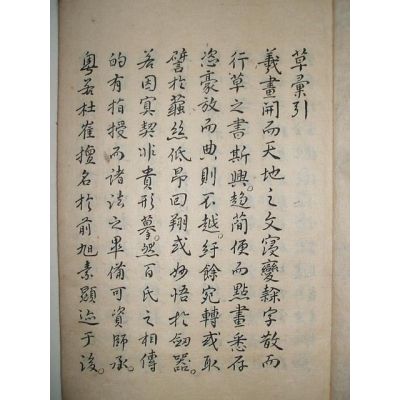 草彙引
羲畫開而天地之文寖變隸字散而
行草之書斯興。趨簡便而點畫悉存
恣豪放而典則不越。紆餘宛轉或取
譬於繭絲低昂回翔或妙悟於劔器。
若因㝠契非貴形摹。然百氏之相傳
的有指授而諸法之畢備可資師承。
粤若杜崔擅名於前旭素顯迹于後。